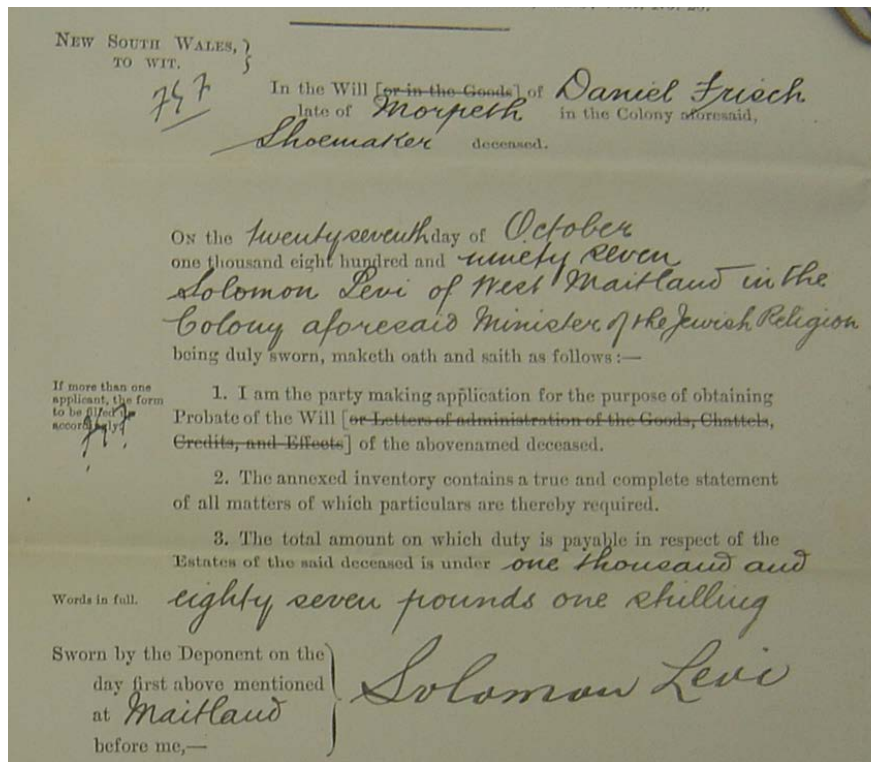 NEW SOUTH WALES,
TO WIT.
In the Will [or in the Goods] of Daniel Frisch
late of Morpeth in the Colony aforesaid,
Shoemaker deceased.
ON the twenty seventh day of October
one thousand eight hundred and ninety seven
Solomon Levi of West Maitland in the
Colony aforesaid Minister of the Jewish Religion
being duly sworn, maketh oath and saith as follows :—
If more than one
applicant, the form
to be filled
accordingly.
1. I am the party making application for the purpose of obtaining
Probate of the Will [or Letters of administration of the Goods, Chattels,
Credits, and Effects] of the abovenamed deceased.
2. The annexed inventory contains a true and complete statement
of all matters of which particulars are thereby required.
3. The total amount on which duty is payable in respect of the
Estates of the said deceased is under one thousand and
Words in full. eighty seven pounds one shilling
Sworn by the Deponent on the
day first above mentioned
at Maitland
before me,—
Solomon Levi